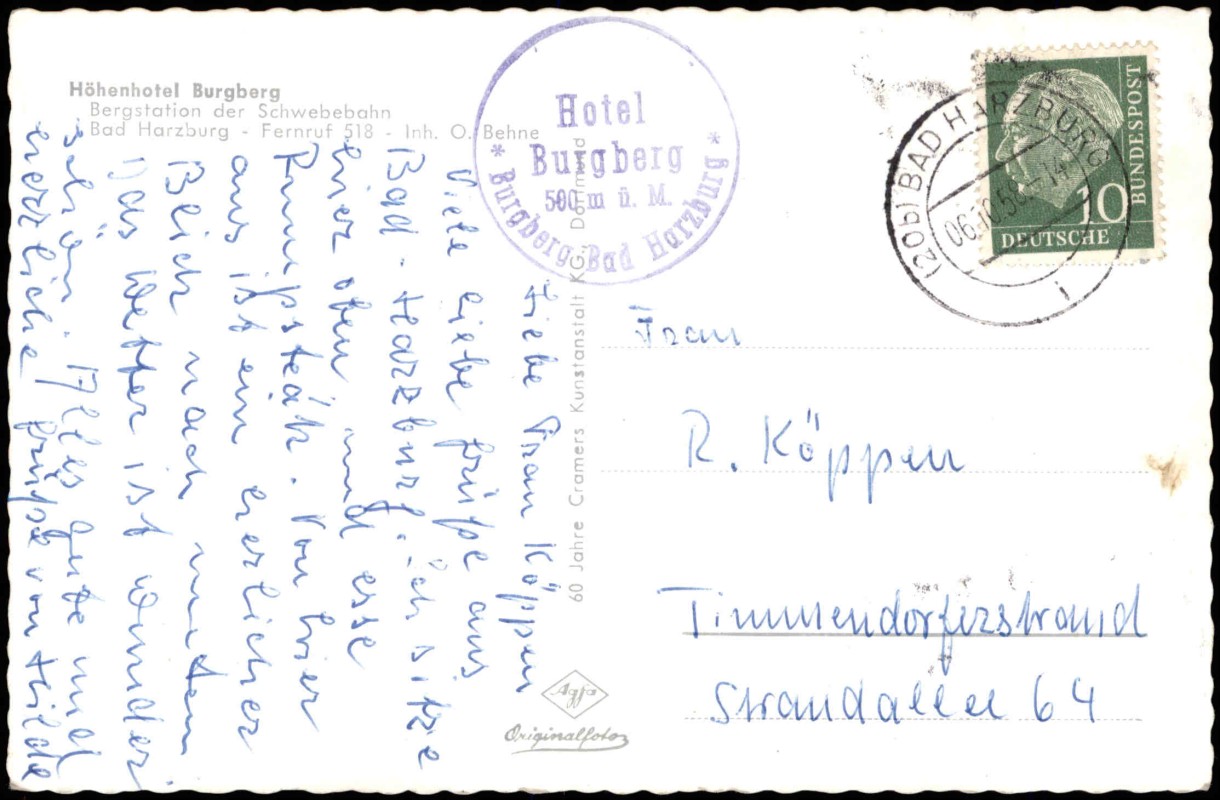 Höhenhotel Burgberg
Bergstation der Schwebebahn
Bad Harzburg - Fernruf 518 - Inh. O. Behne
Hotel
Burgberg
500 m ü. M.
* Burgberg-Bad Harzburg *
(20b) BAD HARZBURG
06.10.58.-14
i
DEUTSCHE
BUNDESPOST
10
Liebe Frau Köppen
Viele liebe Grüße aus
Bad-Harzburg. Ich sitze
hier oben und esse
Rumpsteak. Von hier
aus ist ein herrlicher
Blick nach unten
Das Wetter ist wunder
schön. Alles gute und
herzliche Grüße von Hilde
60 Jahre Cramers Kunstanstalt KG., Dortmund
Agfa
Originalfoto
Frau
R. Köppen
Timmendorferstrand
Strandallee 64